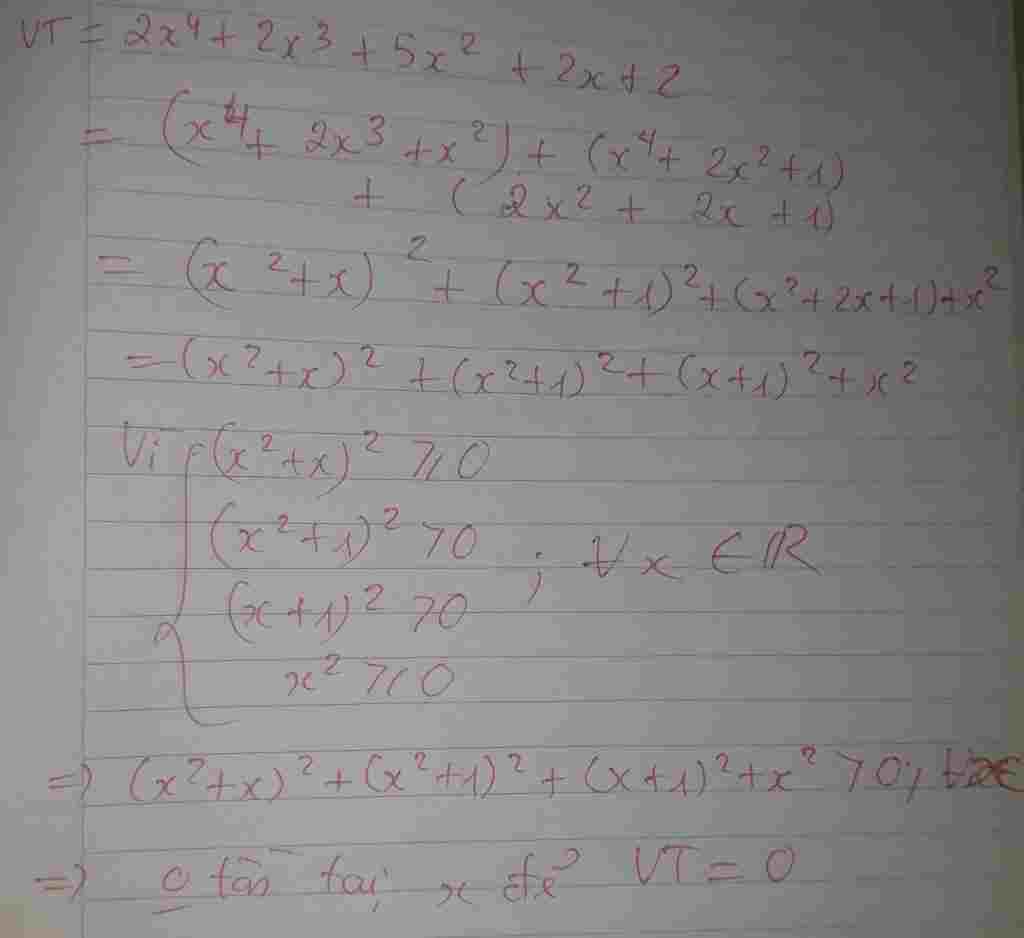 VT = 2x⁴ + 2x³ + 5x² + 2x + 2
= (x⁴ + 2x³ + x²) + (x⁴ + 2x² + 1)
+ ( 2x² + 2x + 1)
= (x² + x)² + (x² + 1)² + (x² + 2x + 1) + x²
= (x² + x)² + (x² + 1)² + (x + 1)² + x²
Vì { (x² + x)² ⩾ 0
(x² + 1)² > 0 ; ∀x ∈ ℝ
(x + 1)² > 0
x² ⩾ 0
=> (x² + x)² + (x² + 1)² + (x + 1)² + x² > 0; ∀x ∈
=> o tồn tại x để VT = 0